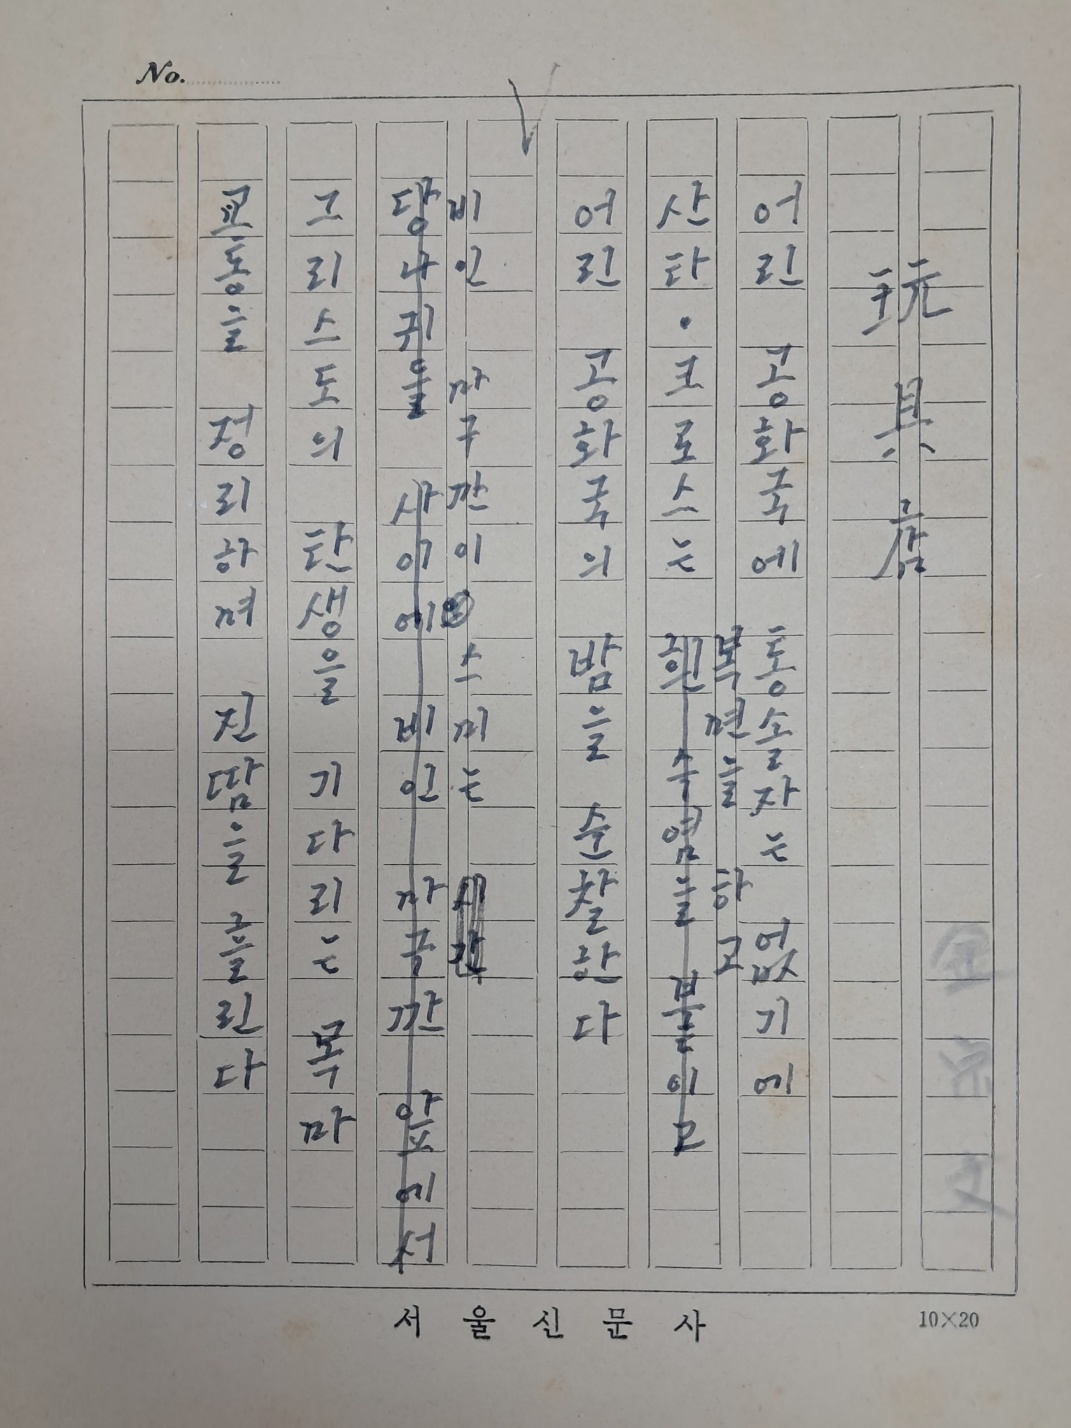 No.
玩具店
어린 공화국에 통솔자는 없기에
복면을 하고
산타·크로스는 흰 수염을 붙이고
어린 공화국의 밤을 순찰한다
비인 마구깐이 스미는
당나귀들 사이에 비인 마굿깐 앞에서
그리스도의 탄생을 기다리는 목마
교통을 정리하며 진땀을 흘린다
서울신문사
10×20